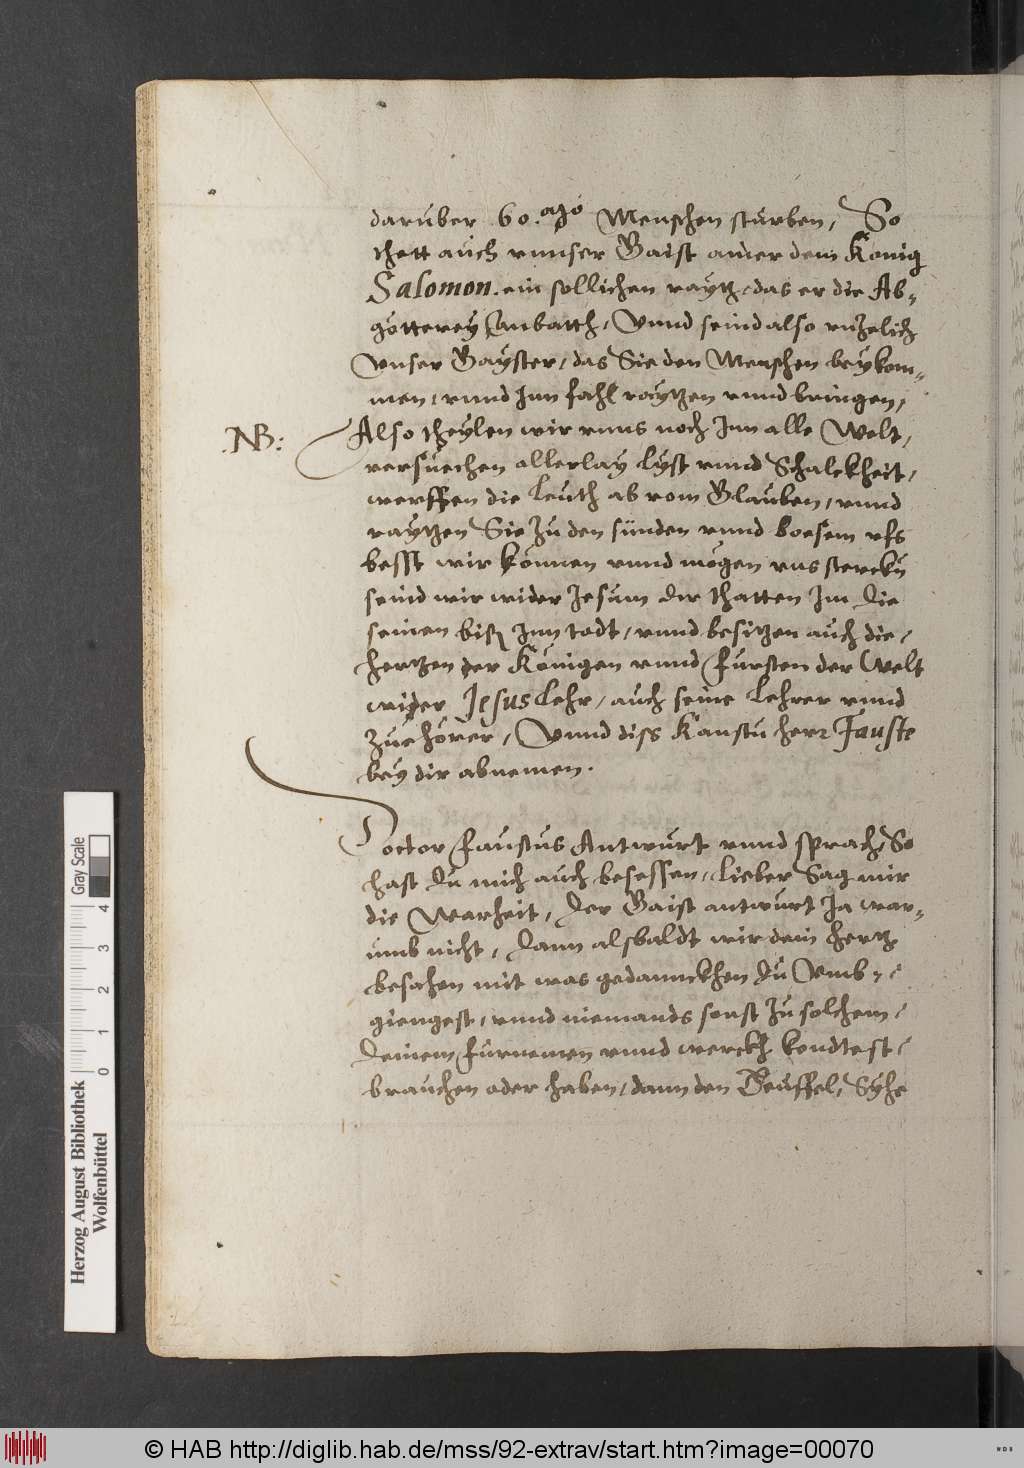 daruber 60.000 Menschen sturben, So
thett auch vnnser Gaist ainer dem Konig
Salomon. ein sollichen raytz, das er die Ab-
gotterey anbatth, Vnnd seind also vnzelich
Vnser Gayster, das Sie den Menschen beykom-
men, vnnd Inn fahl raytzen vnnd bringen,
NB: Also theylen wir vnns noch Inn alle Welt,
versuechen allerlay lyst vnnd Schalckheit,
werffen die leuth ab vom Glauben, vnnd
raytzen Sie zu den sünden vnnd boesem vfs
besst wir können vnnd mögen vns stercku
seind wir wider Jesum der thatten Im die
seinen biß Inn todt, vnnd besitzen auch die
hertzen der Königen vnnd fursten der Welt
wider Jesus Lehr, auch seine Lehrer vnnd
zuehörer, Vnnd diss Kanstu herr Fauste
bey dir abnemen.
Doctor Faustus Antwurt vnnd sprach, So
hast du mich auch besessen, lieber Sag mir
die Warheit, der Gaist antwurt Ja war-
umb nicht, dann alsbaldt wir dein hertz
besahen mit was gedannckhen du Vmb-
giengest, vnnd niemands sonst zu solchem
deinem furnemen vnnd werckh kondtest
brauchen oder haben, dann den Deuffel, Syhe
Herzog August Bibliothek
Wolfenbüttel
Gray Scale
0 1 2 3 4
© HAB http://diglib.hab.de/mss/92-extrav/start.htm?image=00070